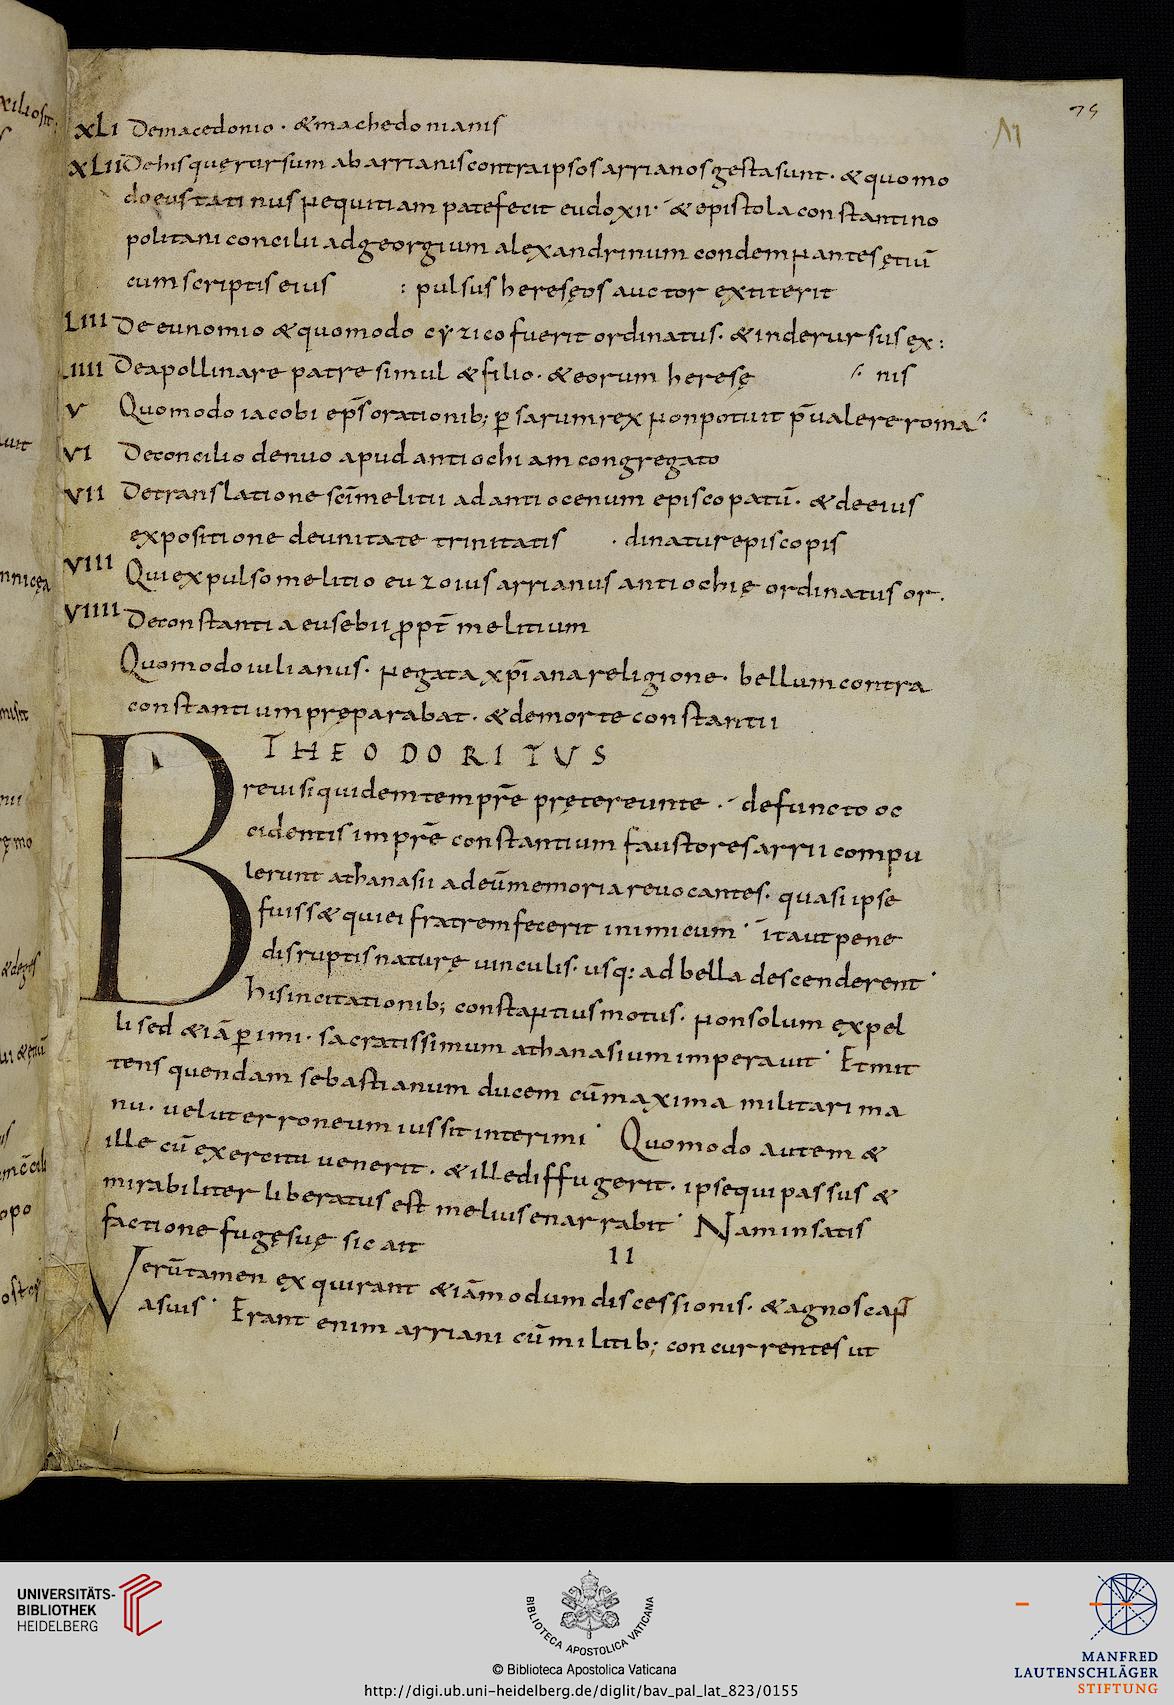 75
XLI Demacedonio · &machedonianis
XLII Dehisquę rursum abarrianiscontraipsosarrianosgestasunt · &quomo
doeustatinus nequitiam patefecit eudoxii · & epistola constantino
politani concilii adgeorgium alexandrinum condemnantes ętiū
cumscriptis eius : pulsus heresęos auctor extiterit
LIII De eunomio &quomodo cyzico fuerit ordinatus · &inderursus ex :
LIIII Deapollinare patre simul &filio · &eorum heresę nis
V Quomodo iacobi ep̄s orationib; ꝑsarumrex nonpotuit p̄ualere roma
VI Deconcilio denuo apud antiochiam congregato
VII Detranslatione sc̄imelitii ad antiocenum episcopatū · &deeius
expositione deunitate trinitatis · dinaturepiscopis
VIII Quiexpulsomelitio euzoius arrianus antiochię ordinatus or ·
VIIII Deconstantia eusebii ꝓpt̄ melitium
Quomodoiulianus · negata xp̄iana religione · bellumcontra
constantium pręparabat · &demorte constantii
THEODORITUS
Breuisiquidemtempr̄e pręterеunte · defuncto oc
cidentis impr̄e constantium faustores arrii compu
lerunt athanasii adeū memoria reuocantes · quasi ipse
fuiss& quiei fratrem fecerit inimicum · itautpene
disruptis naturę uinculis · usq; ad bella descenderent ·
hisincitationib; constantiusmotus · nonsolum expel
li sed &iā ꝑimi · sacratissimum athanasium imperauit · Etmit
tens quendam sebastianum ducem cū maxima militari ma
nu · uelut erroneum iussit interimi · Quomodo autem &
ille cū exercitu uenerit · & ille diffugerit · ipsequipassus &
mirabiliter liberatus est meliusenarrabit · Naminsatis
factione fugęsuę sic ait II
Verūtamen exquirant &iāmodum discessionis · &agnoscaṉt
asuis · Erant enim arriani cū militib; concurrentes ut
UNIVERSITÄTS-
BIBLIOTHEK
HEIDELBERG
BIBLIOTECA APOSTOLICA VATICANA
© Biblioteca Apostolica Vaticana
http://digi.ub.uni-heidelberg.de/diglit/bav_pal_lat_823/0155
MANFRED
LAUTENSCHLÄGER
STIFTUNG